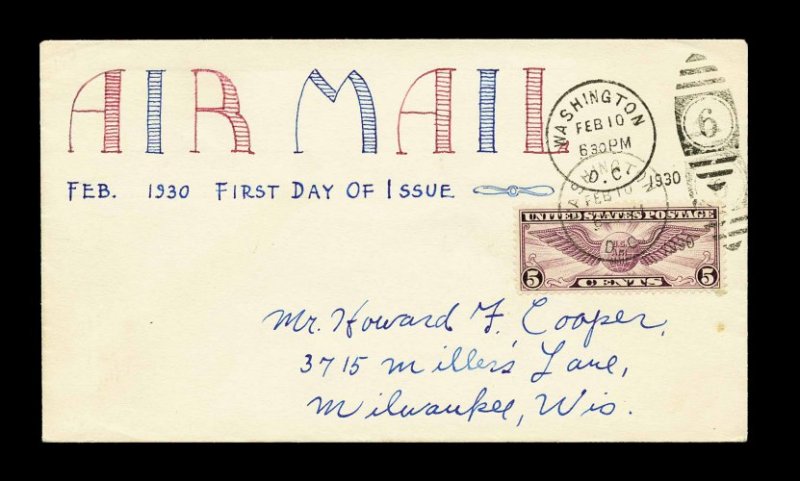 AIR MAIL
FEB. 1930 FIRST DAY OF ISSUE
WASHINGTON
FEB 10
6 30 PM
D.C.
1930
6
FEB 10
D.C.
UNITED STATES POSTAGE
5 CENTS 5
Mr. Howard F. Cooper,
3715 Miller's Lane,
Milwaukee, Wis.